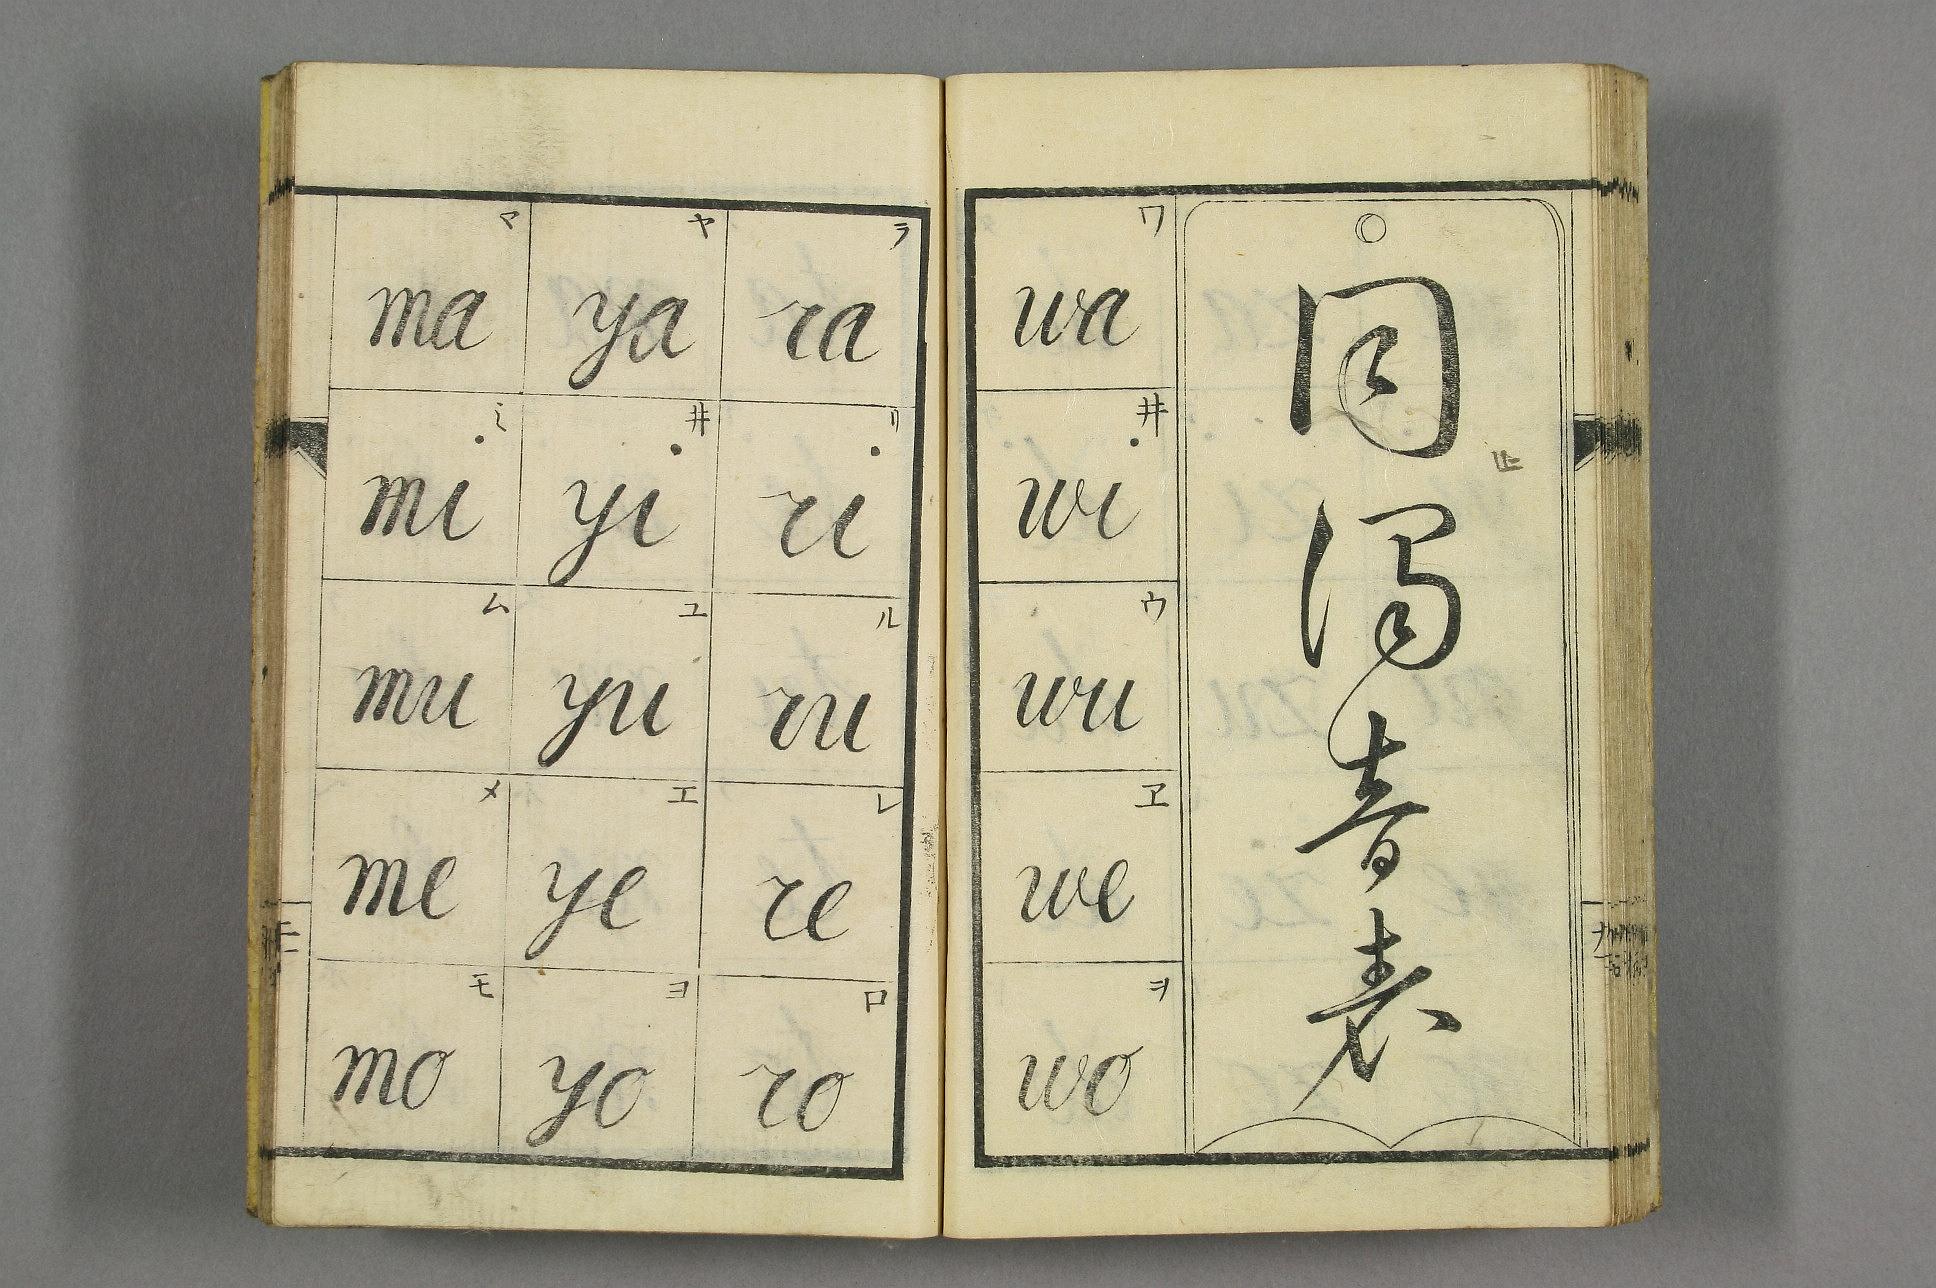 同濁音表
ワ wa
井 wi
ウ wu
ヱ we
ヲ wo
ラ ra
リ ri
ル ru
レ re
ロ ro
ヤ ya
井 yi
ユ yu
エ ye
ヨ yo
マ ma
ミ mi
ム mu
メ me
モ mo